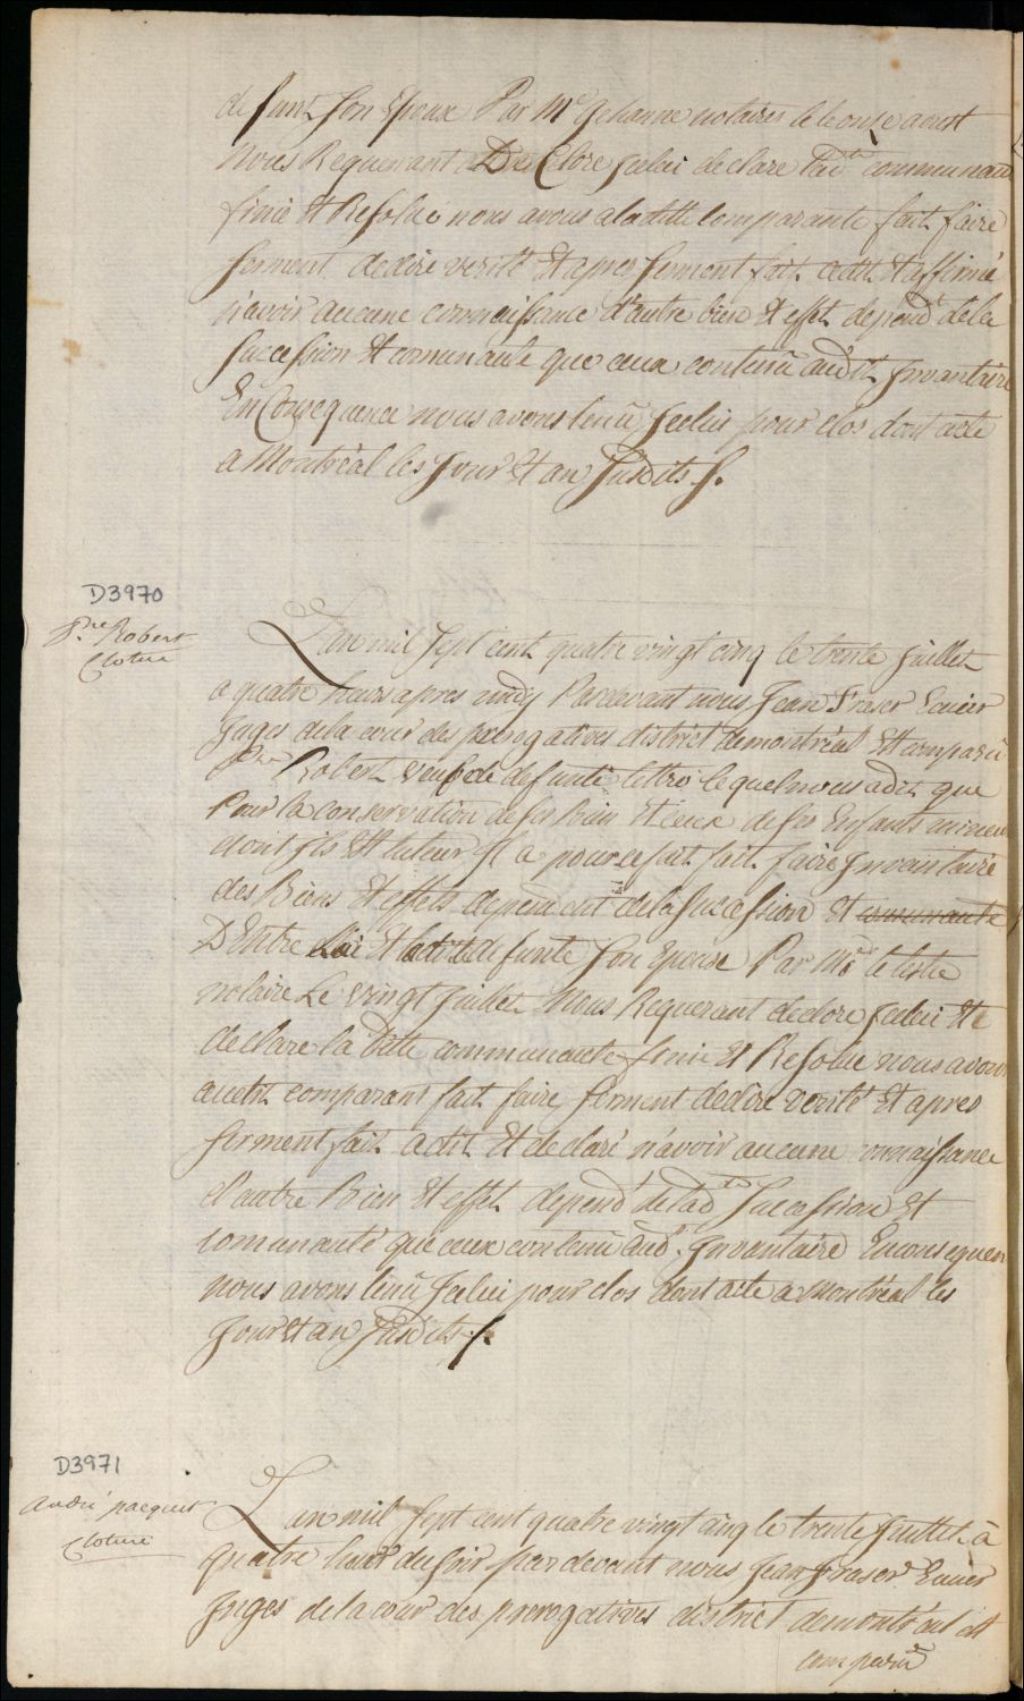 defunt son Epoux Par Me Jehanne notaires le le onze aoust
Nous Requerant De Clore Jcelui declare lad.te communau
finie Et Resolue nous avons aladitte Comparante fait faire
serment dedire verité Et apres serment fait adit Et affirmé
n'avoir aucune connaissance d'autre bien Et effet depend.t dela
succession Et comunauté que ceux contenu audit Jnventaire
En Consequence nous avons tenû Jcelui pour clos dont acte
a Montréal les Jour Et an susdits ./.
D3970
Jne Robert
Cloture
L'an mil sept cent quatre vingt cinq le trente juillet
a quatre heures apres midy Pardevant nous Jean Fraser Ecuier
Juges dela cour des prerogatives district demontréal Est comparû
Robert veuf de defunte lequel nous adit que
Pour la conservation de ses Bien Et Ceux de ses Enfants mineur
dont jls Est tuteur Jl a pour cefait fait faire Jnvantaire
des Biens Et effets dependent dela succession Et comunauté
D'Entre Lui Et ladite defunte son Epouse Par Me
notaire Le vingt Juillet Nous Requerant declore Jcelui Et
declare la ditte communauté finie Et Resolue nous avons
audit comparant fait faire serment dedire verité Et apres
serment fait adit Et declaré n'avoir aucune connaissance
d'autre Bien Et effet depend.t delad.te succession Et
comunauté que ceux contenu aud.t Jnvantaire Enconsequen
nous avons tenû Jcelui pour clos dont acte a Montréal les
Jour Et an susdits ./.
D3971
André pacquet
Cloture
L'an mil sept cent quatre vingt cinq le trente Juillet à
quatre heure du soir par devant nous Jean fraser Ecuier
Juges dela cour des prerogatives district demontréal est
comparû